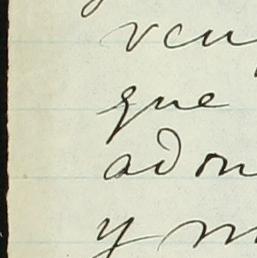 veu
que
adon
y m